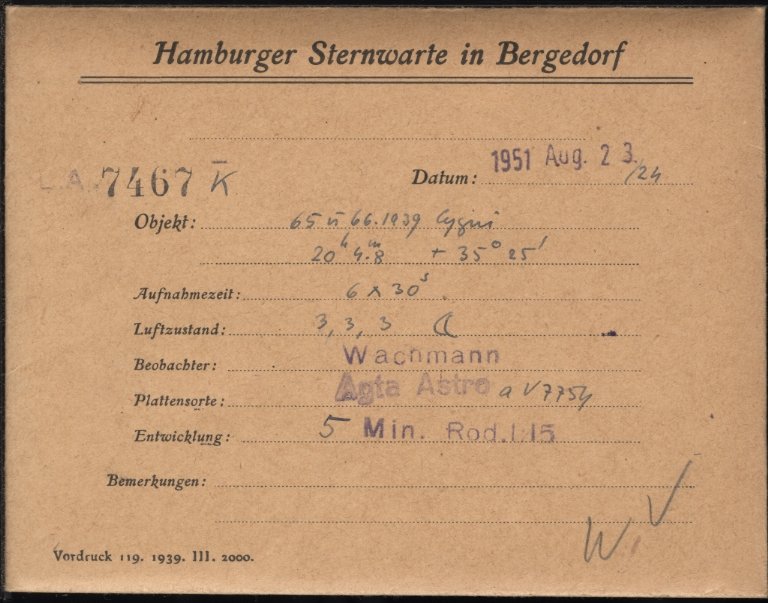 Hamburger Sternwarte in Bergedorf
L.A. 7467 K̅
Datum: 1951 Aug. 23./24
Objekt: 65 u 66.1939 Cygni
20ʰ 4.ᵐ8 + 35° 25'
Aufnahmezeit: 6 x 30ˢ.
Luftzustand: 3, 3, 3 ☾
Beobachter: Wachmann
Plattensorte: Agfa Astro a V7754
Entwicklung: 5 Min. Rod. 1:15
Bemerkungen:
W. V
Vordruck 119. 1939. III. 2000.